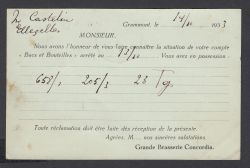 M Castelin
Ellegelles
Grammont, le 14/10 1953
MONSIEUR,
Nous avons l'honneur de vous faire connaître la situation de votre compte
« Bacs et Bouteilles » arrêté au 13/10 Vous avez en possession
658/2 205/3 28
Toute réclamation doit être faite dès réception de la présente.
Agréez, M... nos sincères salutations.
Grande Brasserie Concordia.